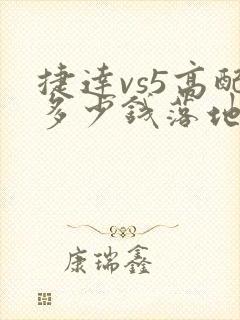 捷達vs5高配
多少钱落地
康瑞鑫